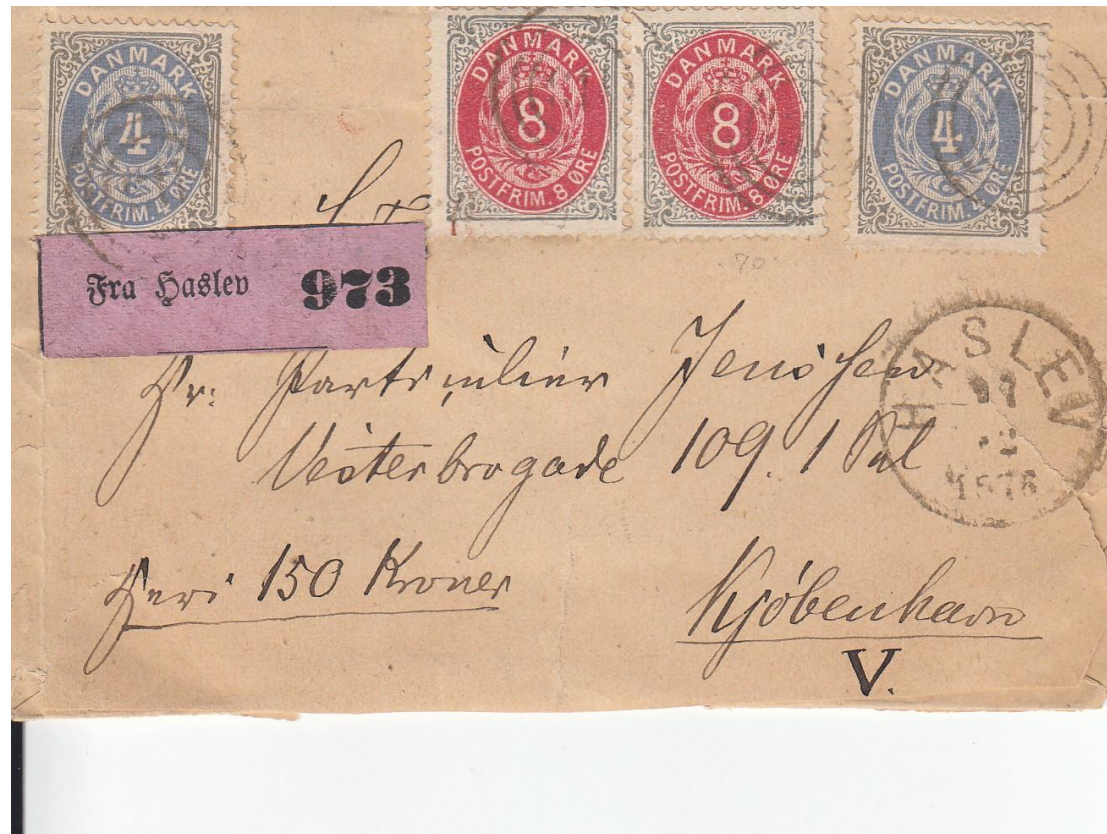 DANMARK 4 POSTFRIM. 4 ØRE
DANMARK 8 POSTFRIM. 8 ØRE
DANMARK 8 POSTFRIM. 8 ØRE
DANMARK 4 POSTFRIM. 4 ØRE
70
Fra Haslev 973
HASLEV
1876
Hr: Particulier Jenssen
Vesterbrogade 109. 1 Sal
Heri 150 Kroner
Kjöbenhavn
V.